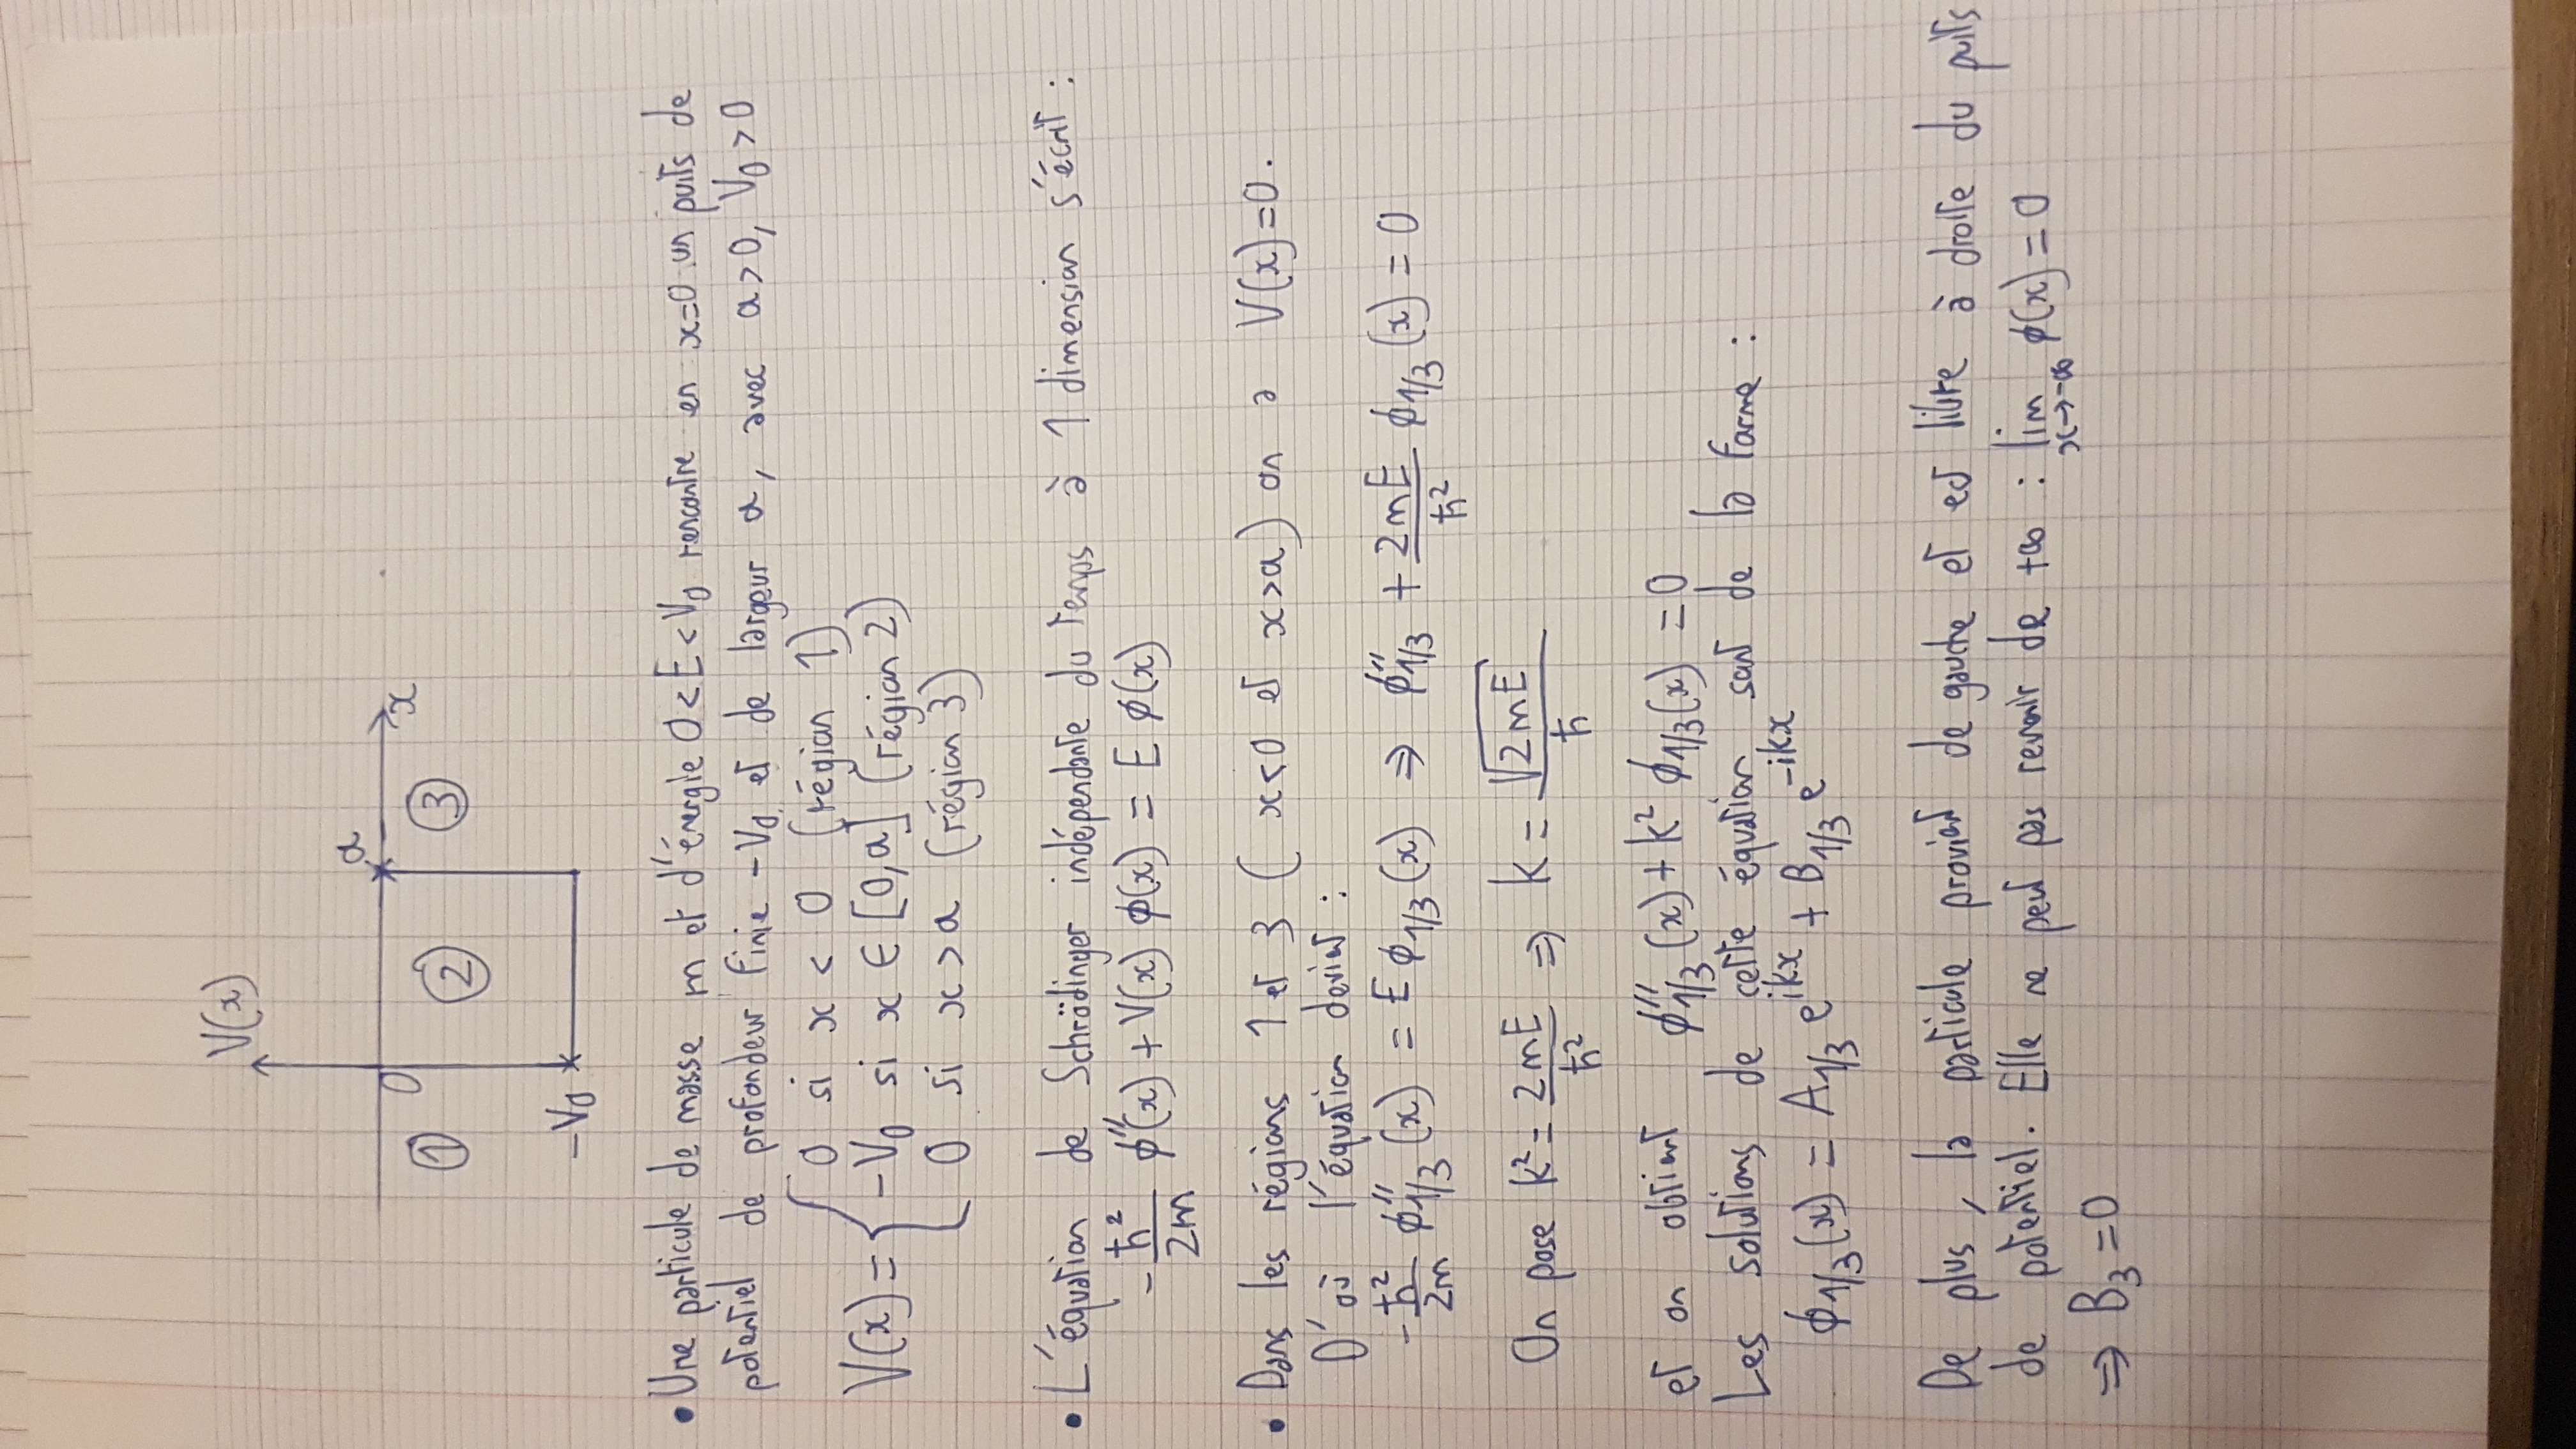 V(x)
a
0
x
①
②
③
-V₀
• Une particule de masse m et d'énergie 0 < E < V₀ rencontre en x=0 un puits de
potentiel de profondeur finie -V₀ et de largeur a, avec a > 0, V₀ > 0
V(x) = { 0 si x < 0 (région 1)
-V₀ si x ∈ [0,a] (région 2)
0 si x > a (région 3)
• L'équation de Schrödinger indépendante du temps à 1 dimension s'écrit :
-ħ²/2m ϕ''(x) + V(x) ϕ(x) = E ϕ(x)
• Dans les régions 1 et 3 ( x<0 et x>a ) on a V(x)=0.
D'où l'équation devient :
-ħ²/2m ϕ''₁/₃ (x) = E ϕ₁/₃ (x) ⇒ ϕ''₁/₃ + 2mE/ħ² ϕ₁/₃ (x) = 0
On pose k² = 2mE/ħ² ⇒ k = √2mE/ħ
et on obtient ϕ''₁/₃ (x) + k² ϕ₁/₃(x) = 0
Les solutions de cette équation sont de la forme :
ϕ₁/₃(x) = A₁/₃ e^{ikx} + B₁/₃ e^{-ikx}
De plus, la particule provient de gauche et est libre à droite du puits
de potentiel. Elle ne peut pas revenir de +∞ : lim x→-∞ ϕ(x) = 0
⇒ B₃ = 0